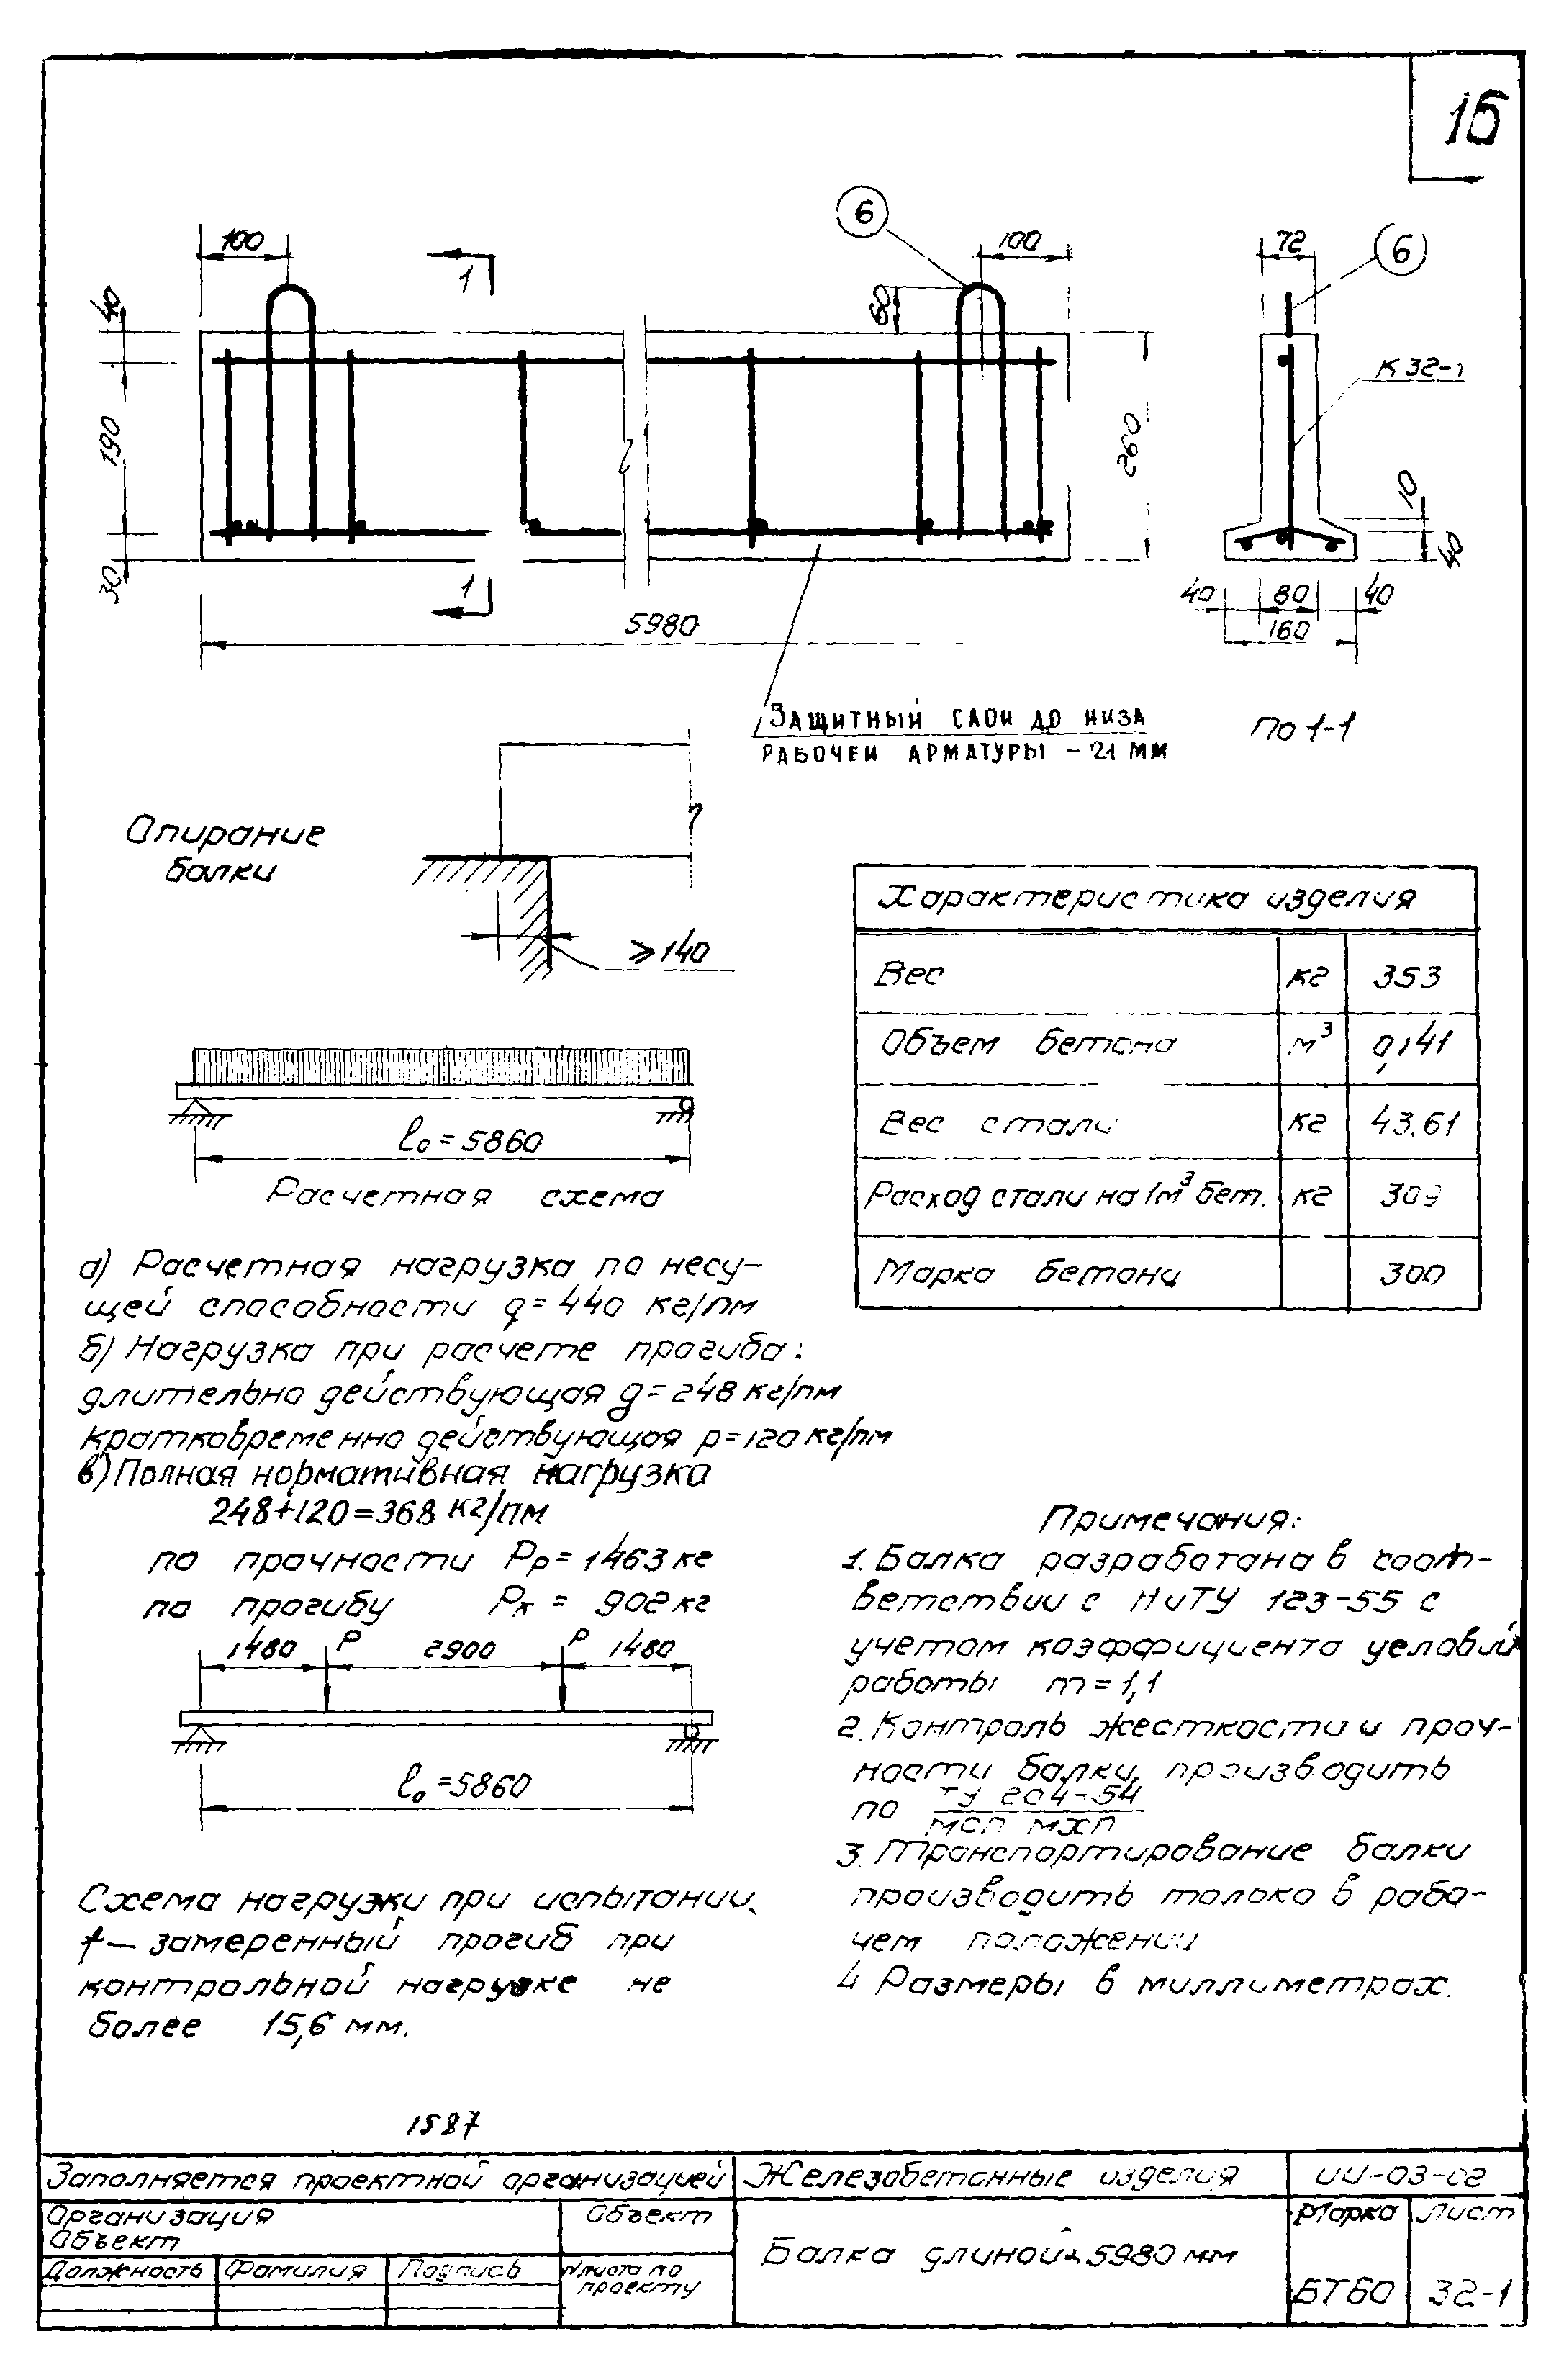 16
6
100
1
100
72
6
40
60
К 32-1
190
260
10
30
40
1
5980
40
80
40
160
Защитный слой до низа
рабочей арматуры – 21 мм
По 1-1
Опирание
балки
⩾140
Характеристика изделия
Вес кг 353
Объем бетона м³ 0,141
Вес стали кг 43,61
Расход стали на 1м³ бет. кг 309
Марка бетона 300
l₀ = 5860
Расчетная схема
а) Расчетная нагрузка по несу-
щей способности q = 440 кг/пм
б) Нагрузка при расчете прогиба:
длительно действующая g = 248 кг/пм
кратковременно действующая p = 120 кг/пм
в) Полная нормативная нагрузка
248+120=368 кг/пм
по прочности Pр = 1463 кг
по прогибу Pж = 902 кг
1480 P 2900 P 1480
l₀ = 5860
Схема нагрузки при испытании.
f — замеренный прогиб при
контрольной нагрузке не
более 15,6 мм.
Примечания:
1. Балка разработана в соот-
ветствии с НиТУ 123-55 с
учетом коэффициента условий
работы m = 1,1
2. Контроль жесткости и проч-
ности балки производить
по ТУ 204-54
МСП МХП
3. Транспортирование балки
производить только в рабо-
чем положении.
4 Размеры в миллиметрах.
1587
Заполняется проектной организацией
Железобетонные изделия
ИИ-03-02
Организация
Объект
Объект
Марка Лист
Балка длиной 5980 мм
Должность Фамилия Подпись
N листа по
проекту
БТ60 32-1